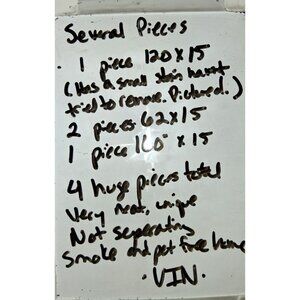 Several Pieces
1 piece 120 x 15
(Has a small stain havnt
tried to remove. Pictured.)
2 pieces 62 x 15
1 piece 160" x 15
4 huge pieces total
Very neat, unique
Not seperating
smoke and pet free home
·VIN·